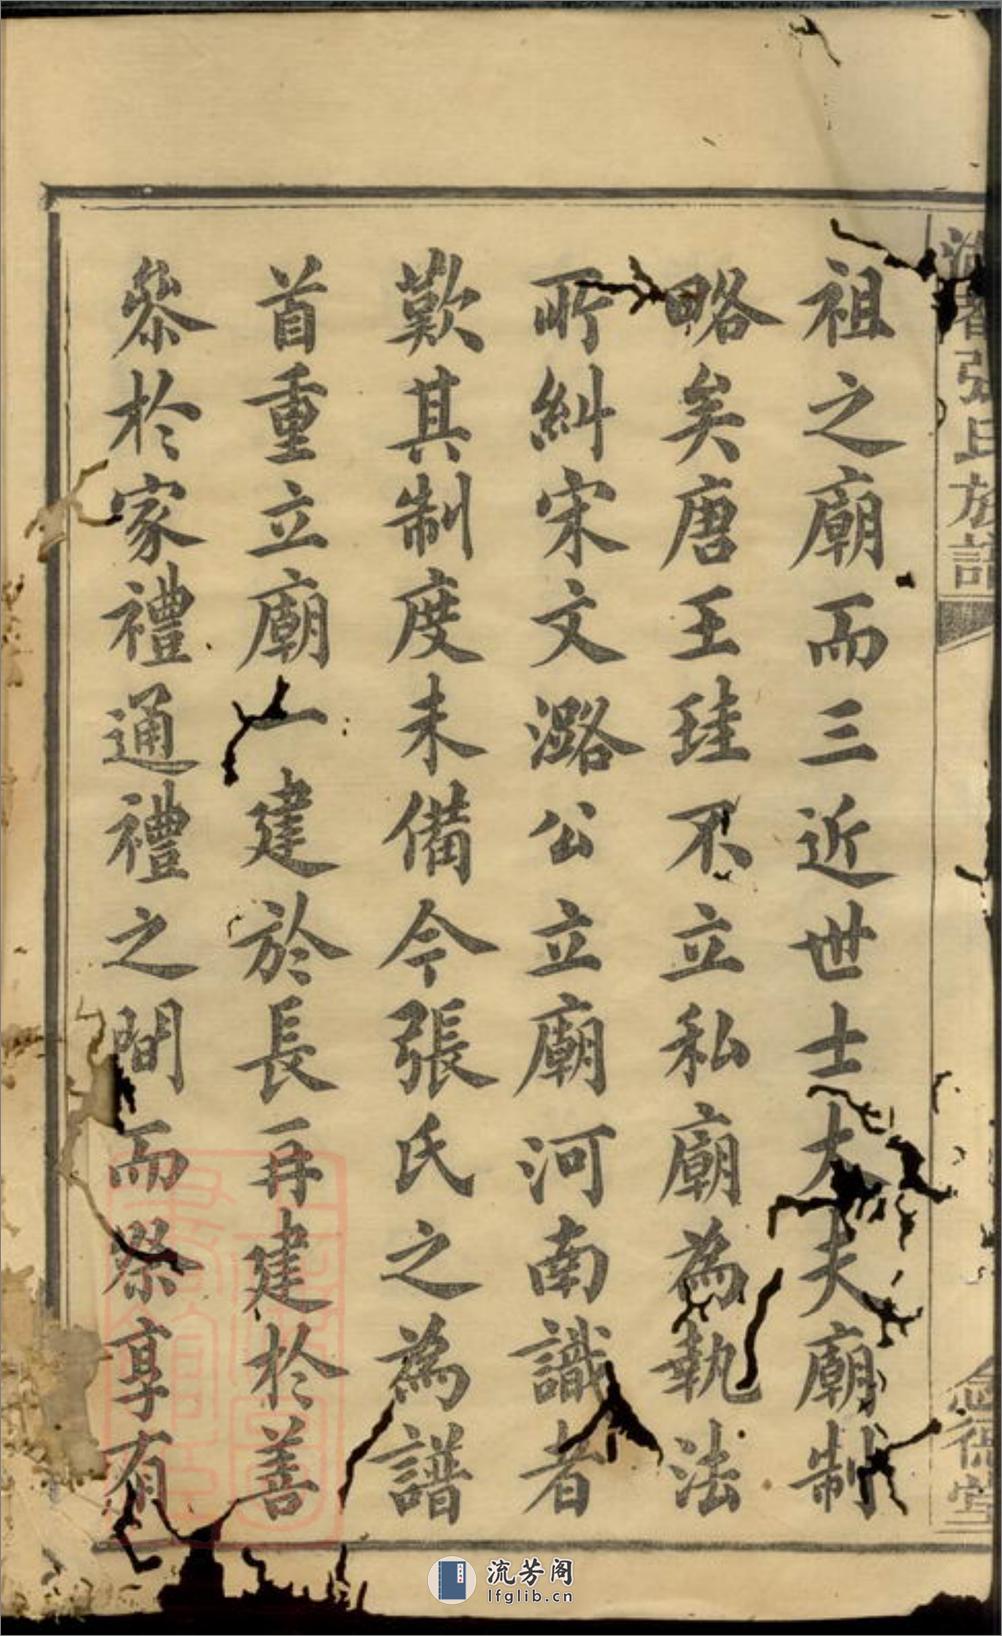 張氏族譜
祖之廟而三近世士大夫廟制
略矣唐王珪不立私廟為執法
所糾宋文潞公立廟河南識者
歎其制度未備今張氏之為譜
首重立廟一建於長再建於善
叅於家禮通禮之間而祭享有
德堂
流芳阁
lfglib.cn